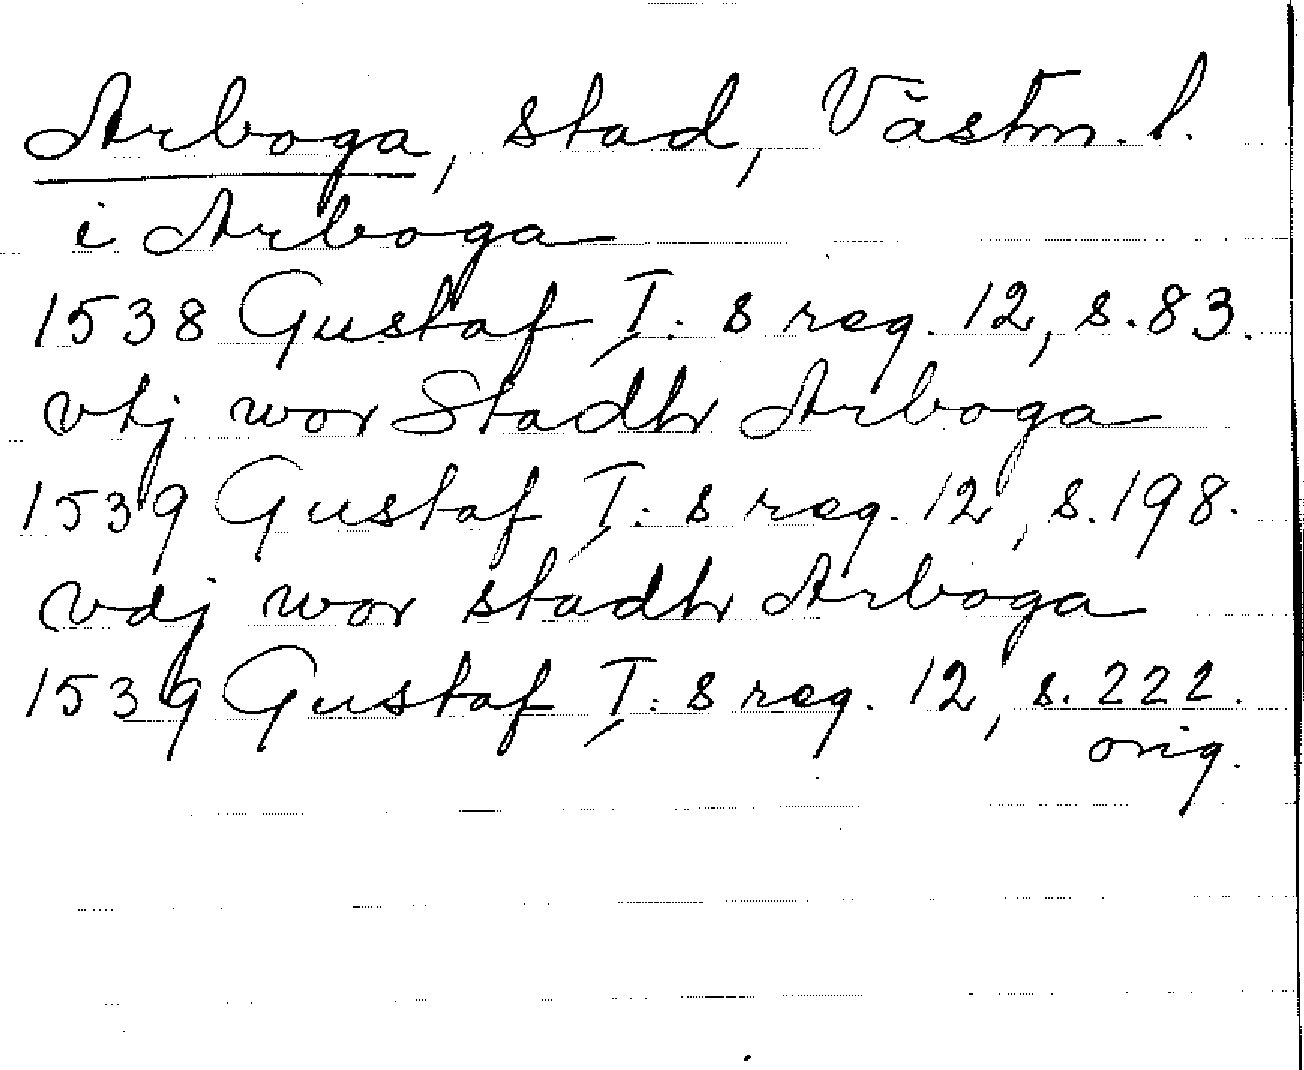 Arboga, stad, Västm. l.
i Arboga
1538 Gustaf I: s reg. 12, s. 83.
vtj wor Stadh Arboga
1539 Gustaf I: s reg. 12, s. 198.
vdj wor stadh Arboga
1539 Gustaf I: s reg. 12, s. 222.
orig.